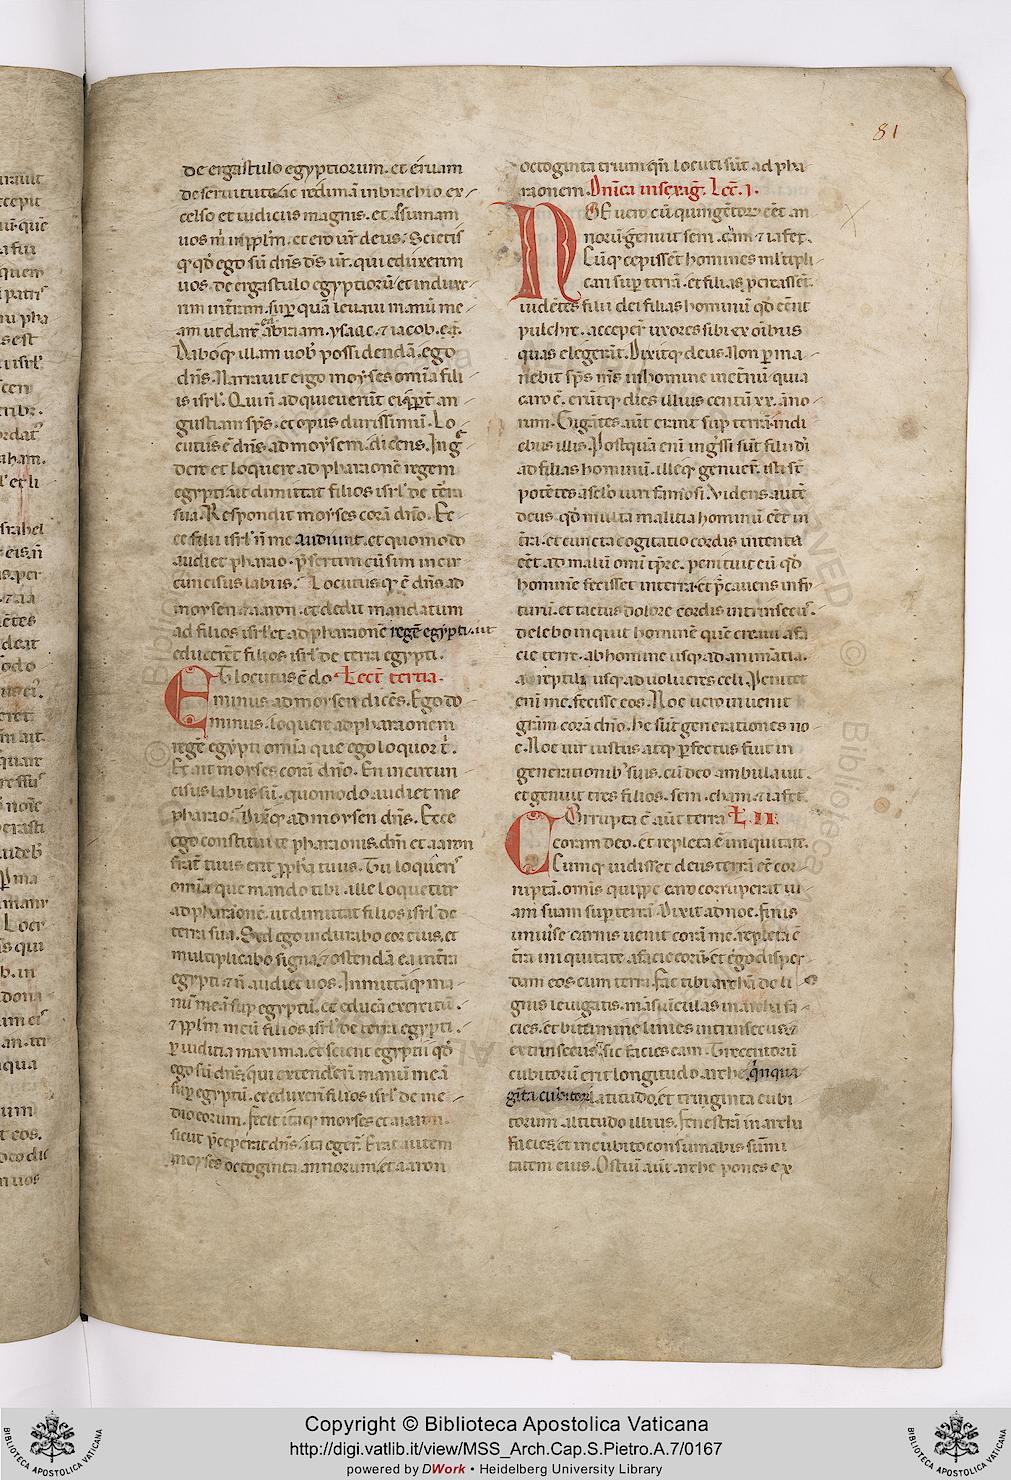 81
de ergastulo egyptiorum. et eruam
de seruitute. ac redimā in brachio ex-
celso et iudiciis magnis. et assumam
uos m̄ in pplm̄. et ero ur̄ deus. Scietis
qꝫ qđ ego sū dn̄s dꝰs ur̄. qui eduxerim
uos de ergastulo egyptiorū et induxe-
rim in t̄ram. suꝑ quā leuaui manū me-
am ut darē eā abraam. ysaac. ⁊ iacob.
Daboqꝫ illam uob̄ possidendā. ego
dn̄s. Narrauit ergo moyses omīa fili-
is isrl̄. Qui n̄ adquieuerūt ei ꝓpt̄ an-
gustiam sp̄s. et opus durissimū. Lo-
cutus ē dn̄s. ad moysem dicens. Ing-
dere et loquere ad pharaonē regem
egypti. ut dimittat filios isrl̄ de tera
sua. Respondit moyses corā dn̄o. Ec-
ce filii isrl̄ n̄ me audiunt. et quomodo
audiet pharao. p̄sertim cū sim incir-
cuncisus labiis. Locutusqꝫ ē dn̄s ad
moysen ⁊ aaron. et dedit mandatum
ad filios isrl̄. et ad pharaonē regē egypti. ut
educerēt filios isrl̄ de terra egypti.
ET locutus ē do- Lect̄ tertia.
minus ad moysen dicēs. Ego do-
minus. loquere ad pharaonem
regē egypti omīa que ego loquor t̄.
Et ait moyses corā dn̄o. En incircun-
cisus labiis sū. quomodo audiet me
pharao. Dixitqꝫ ad moysen dn̄s. Ecce
ego constitui te pharaonis dm̄. et aaron
frat̄ tuus erit ꝓpha tuus. Tu loqueris
omīa que mando tibi. ille loquetur
ad pharaonē. ut dimittat filios isrl̄ de
terra sua. Sed ego indurabo cor eius. et
multiplicabo signa. ⁊ ostendā ea in t̄ra
egypti ⁊ n̄ audiet uos. Inmittāqꝫ ma-
nū meā suꝑ egyptū. et educā exercitū
⁊ pplm̄ meū filios isrl̄ de terra egypti.
ꝑ iuditia maxima. et scient egyptii qđ
ego sū dn̄s. qui extenderī manū meā
suꝑ egyptū. et eduxerī filios isrl̄ de me-
dio eorum. fecit itaqꝫ moyses et aaron.
sicut p̄ceperat dn̄s. ita egerūt. Erat autem
moyses octoginta annorum. et aaron
octoginta trium qn̄ locuti sūt ad pha-
raonem. Dn̄ica in sexaḡ. Lect̄. I.
NOE uero cū quingētorū eēt an-
norū genuit sem. cam ⁊ iafeþ.
Cūqꝫ cepissēt homines ml̄tipli-
cari suꝑ terrā. et filias ꝓcreassēt.
uidētes filii dei filias hominū qđ eēnt
pulchre. acceperūt uxores sibi ex oīibus
quas elegerāt. Dixitqꝫ deus. Non ꝑma-
nebit sp̄s m̄s in homine in et̄nū quia
caro ē. erūtqꝫ dies illius centū xx. āno-
rum. Gigātes aūt erant suꝑ terrā in di-
ebus illis. Postquā enī inḡssi sūt filii dī
ad filias hominū. illeqꝫ genuerūt. isti st̄
potētes a sclo uiri famosi. Videns autē
deus. qđ multa malitia hominū eēt in
t̄ra. et cuncta cogitatio cordis intenta
eēt ad malū omī tp̄re. penituit eū qđ
hominē fecisset in terra. et p̄cauens in fu-
turū. et tactus dolore cordis intrinsecus.
delebo inquit hominē quē creaui a fa-
cie terre. ab homine usqꝫ ad animātia.
a reptili usqꝫ ad uolucres celi. Penitet
enī me. fecisse eos. Noe uero inuenit
grām corā dn̄o. he sūt generationes no-
e. Noe uir iustus atqꝫ ꝑfectus fuit in
generationibꝰ suis. cū deo ambulauit.
et genuit tres filios. sem. cham. ⁊ iafet.
COrrupta ē aūt terra L. II.
coram deo. et repleta ē iniquitate.
Cumqꝫ uidisset deus terrā eē cor-
ruptā. omīs quippe caro corruperat ui-
am suam suꝑ terrā. Dixit ad noe. finis
uniuīse carnis uenit corā me. repleta ē
t̄ra iniquitate a facie eorū. et ego disꝑ-
dam eos cum terra. Fac tibi archā de li-
gnis leuigatis. mansiūculas in archa fa-
cies. et bitumine linies intrinsecus ⁊
extrinsecus. sic facies eam. Trecentorū
cubitorū erit longitudo arche. qi̅nqua-
gīta cubitorū latitudo. et triginta cubi-
torum altitudo illius. fenestrā in archa
facies. et in cubito consumabis sūmi-
tatem eius. Ostiū aūt arche pones ex
Copyright © Biblioteca Apostolica Vaticana
http://digi.vatlib.it/view/MSS_Arch.Cap.S.Pietro.A.7/0167
powered by DWork • Heidelberg University Library